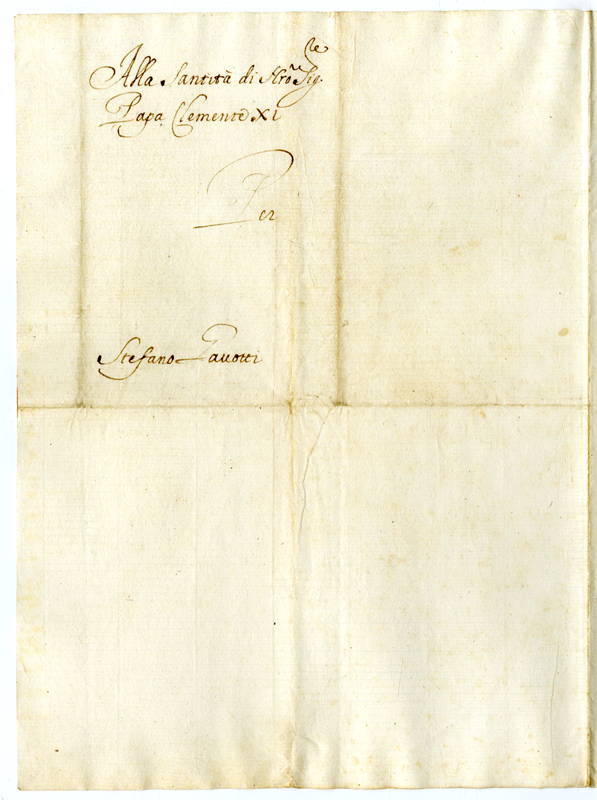 Alla Santità di Nro Sig.re
Papa Clemente XI
Per
Stefano Gavotti